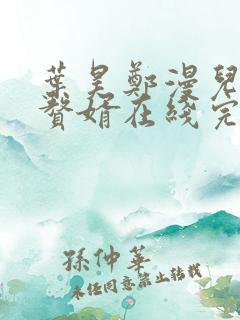 葉昊鄭漫兒
贅婿在綫完
孫仲華
未经同意禁止转载